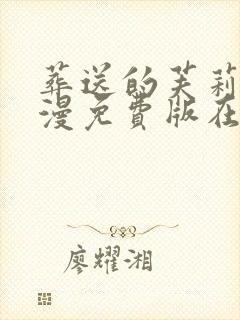 葬送的芙莉
漫免費版在
廖耀湘